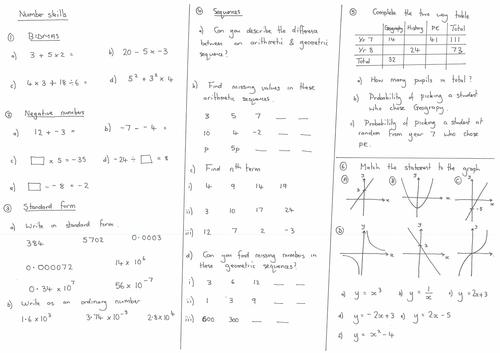 Number skills
① BIDMAS
a) 3 + 5 × 2 =
b) 20 - 5 × -3
c) 4 × 3 + 18 ÷ 6 =
d) 5² + 3² × 4
② Negative numbers
a) 12 + -3 =
b) -7 - -4 =
c) □ × 5 = -35
d) -24 ÷ □ = 8
e) □ - -8 = -2
③ Standard form
a) Write in standard form
384 5702 0.0003
0.000072 14 × 10⁶
0.34 × 10⁷ 56 × 10⁻⁷
b) Write as an ordinary number
1.6 × 10³ 3.74 × 10⁻³ 2.8 × 10⁶
④ Sequences
a) Can you describe the difference
between an arithmetic & geometric
sequence?
b) Find missing values in these
arithmetic sequences.
3 5 7 __ __
10 4 -2 __ __
p 5p __ __ __
c) Find nth term
i) 4 9 14 19
ii) 3 10 17 24
iii) 12 7 2 -3
d) Can you find missing numbers in
these geometric sequences?
i) 3 6 12 __ __
ii) 1 3 9 __ __
iii) 600 300 __ __ __
⑤ Complete the two way table
Geography History PE Total
Yr 7 14 41 111
Yr 8 24 73
Total 32
a) How many pupils in total?
b) Probability of picking a student
who chose Geograpy.
c) Probability of picking a student at
random from year 7 who chose
PE.
⑥ Match the statement to the graph
A B C
y x y x y -5 x
D
a) y = x³ b) y = 1/x c) y = 2x+3
d) y = -2x + 3 e) y = 2x - 5
f) y = x² - 4